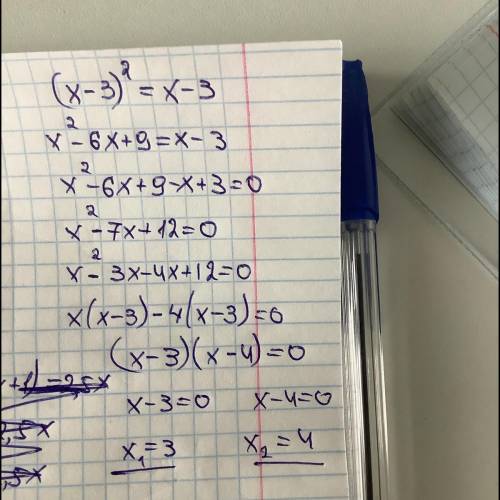 (x-3)² = x-3
x²-6x+9=x-3
x²-6x+9-x+3=0
x²-7x+12=0
x²-3x-4x+12=0
x(x-3)-4(x-3)=0
(x-3)(x-4)=0
x-3=0 x-4=0
x₁=3 x₂=4